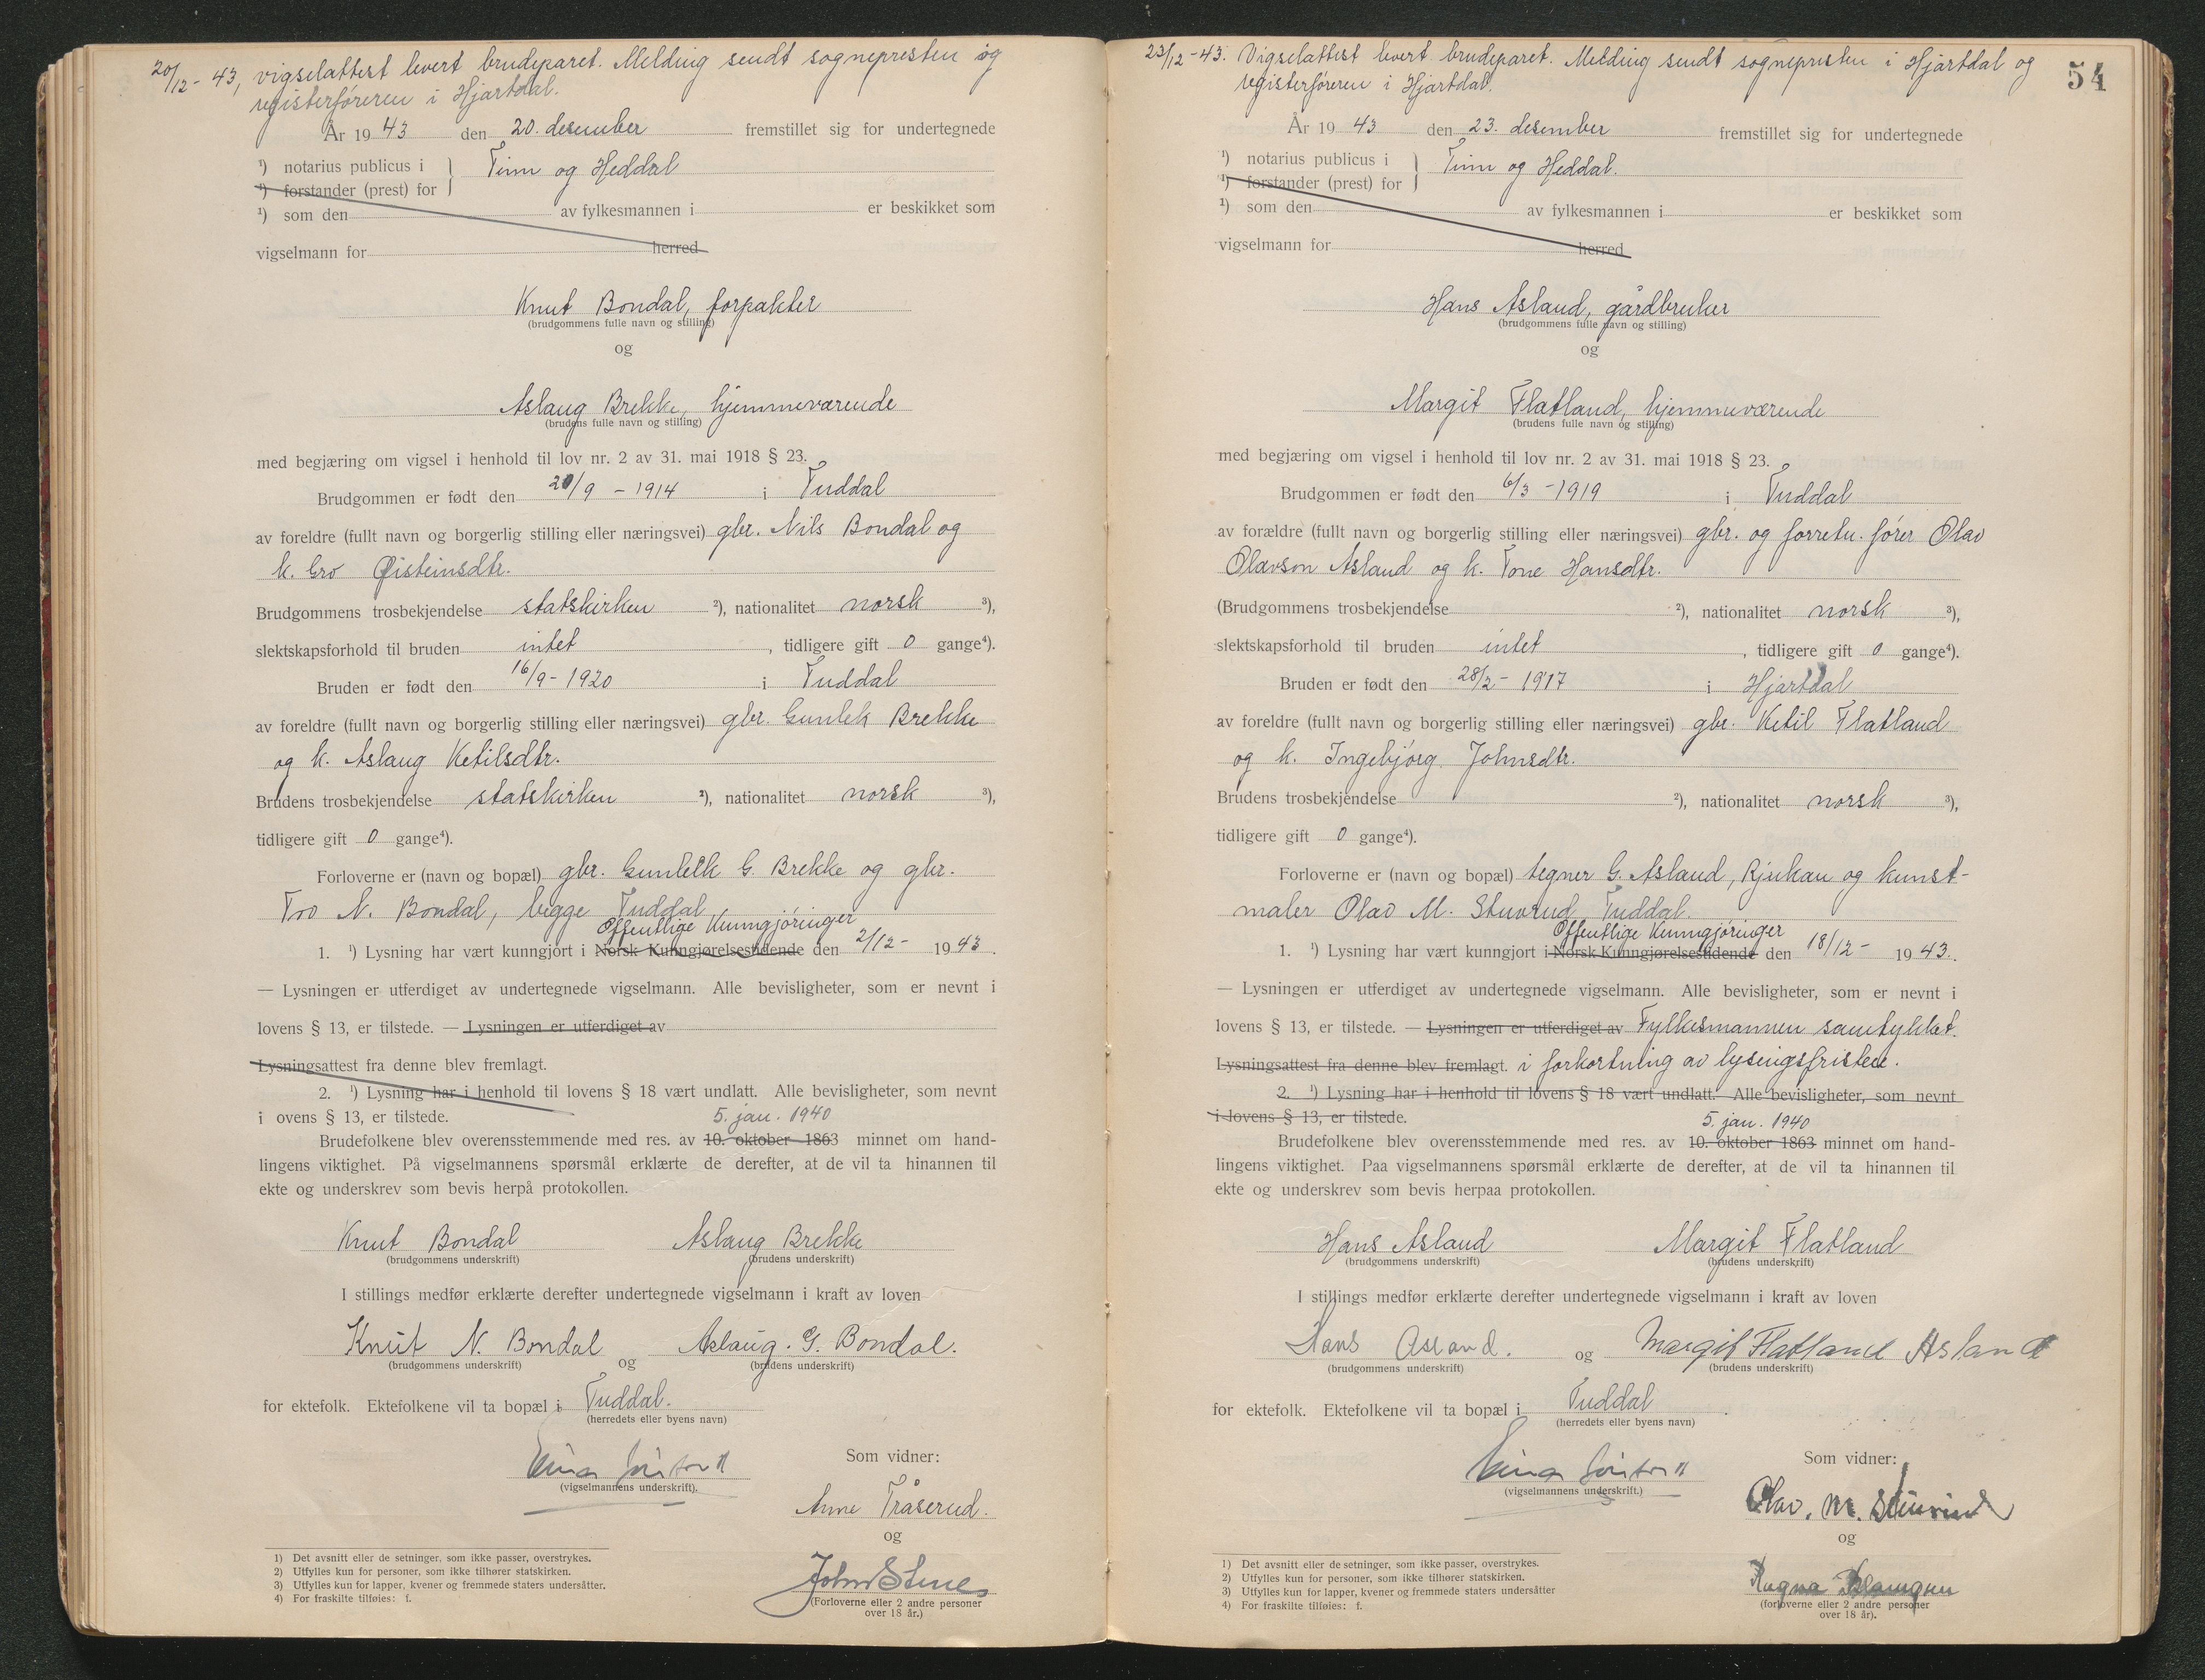 20/12 - 43, vigselattest levert brudeparet. Melding sendt sognepresten og
registerføreren i Hjartdal.
År 19 43 den 20. desember fremstillet sig for undertegnede
¹) notarius publicus i } Tinn og Heddal
¹) forstander (prest) for
¹) som den av fylkesmannen i er beskikket som
vigselmann for herred
Knut Bondal, forpakter
(brudgommens fulle navn og stilling)
og
Aslaug Brekke, hjemmeværende
(brudens fulle navn og stilling)
med begjæring om vigsel i henhold til lov nr. 2 av 31. mai 1918 § 23.
Brudgommen er født den /9 - 1914 i Tuddal
av foreldre (fullt navn og borgerlig stilling eller næringsvei) gbr. Nils Bondal og
k. Gro Øisteinsdtr.
Brudgommens trosbekjendelse statskirken ²), nationalitet norsk ³),
slektskapsforhold til bruden intet , tidligere gift 0 gange⁴).
Bruden er født den 16/9 - 1920 i Tuddal
av foreldre (fullt navn og borgerlig stilling eller næringsvei) gbr. Gunlek Brekke
og k. Aslaug Ketilsdtr.
Brudens trosbekjendelse statskirken ²), nationalitet norsk ³),
tidligere gift 0 gange⁴).
Forloverne er (navn og bopæl) gbr. Gunleik G. Brekke og gbr.
Tov N. Bondal, begge Tuddal
Offentlige Kunngjøringer
1. ¹) Lysning har vært kunngjort i Norsk Kunngjørelsestidende den 2/12 - 19 43.
— Lysningen er utferdiget av undertegnede vigselmann. Alle bevisligheter, som er nevnt i
lovens § 13, er tilstede. — Lysningen er utferdiget av
Lysningsattest fra denne blev fremlagt.
2. ¹) Lysning har i henhold til lovens § 18 vært undlatt. Alle bevisligheter, som nevnt
i ovens § 13, er tilstede.
5. jan. 1940
Brudefolkene blev overensstemmende med res. av 10. oktober 1863 minnet om hand-
lingens viktighet. På vigselmannens spørsmål erklærte de derefter, at de vil ta hinannen til
ekte og underskrev som bevis herpå protokollen.
Knut Bondal Aslaug Brekke
(brudgommens underskrift) (brudens underskrift)
I stillings medfør erklærte derefter undertegnede vigselmann i kraft av loven
Knut N. Bondal og Aslaug. G. Bondal.
(brudgommens underskrift) (brudens underskrift)
for ektefolk. Ektefolkene vil ta bopæl i Tuddal.
(herredets eller byens navn)
Som vidner:
(vigselmannens underskrift).
Anne Tråserud.
og
John Stenes
(Forloverne eller 2 andre personer
over 18 år.)
1) Det avsnitt eller de setninger, som ikke passer, overstrykes.
2) Utfylles kun for personer, som ikke tilhører statskirken.
3) Utfylles kun for lapper, kvener og fremmede staters undersåtter.
4) For fraskilte tilføies: f.
54
23/12 - 43. Vigselattest levert brudeparet. Melding sendt sognepresten i Hjartdal og
registerføreren i Hjartdal.
År 19 43 den 23. desember fremstillet sig for undertegnede
¹) notarius publicus i } Tinn og Heddal.
¹) forstander (prest) for
¹) som den av fylkesmannen i er beskikket som
vigselmann for herred
Hans Asland, gårdbruker
(brudgommens fulle navn og stilling)
og
Margit Flatland, hjemmeværende
(brudens fulle navn og stilling)
med begjæring om vigsel i henhold til lov nr. 2 av 31. mai 1918 § 23.
Brudgommen er født den 6/3 - 1919 i Tuddal
av forældre (fullt navn og borgerlig stilling eller næringsvei) gbr. og forretn. fører Olav
Olavson Asland og k. Tone Hansdtr.
(Brudgommens trosbekjendelse ²), nationalitet norsk ³),
slektskapsforhold til bruden intet , tidligere gift 0 gange⁴).
Bruden er født den 28/2 - 1917 i Hjartdal
av foreldre (fullt navn og borgerlig stilling eller næringsvei) gbr. Ketil Flatland
og k. Ingebjørg Johnsdtr.
Brudens trosbekjendelse ²), nationalitet norsk ³),
tidligere gift 0 gange⁴).
Forloverne er (navn og bopæl) tegner G. Asland, Rjukan og kunst-
maler Olav M. Stuvrud, Tuddal.
Offentlige Kunngjøringer
1. ¹) Lysning har vært kunngjort i Norsk Kunngjørelsestidende den 18/12 - 19 43.
— Lysningen er utferdiget av undertegnede vigselmann. Alle bevisligheter, som er nevnt i
lovens § 13, er tilstede. — Lysningen er utferdiget av Fylkesmannen samtykket
Lysningsattest fra denne blev fremlagt. i forkortning av lysingsfristen.
2. ¹) Lysning har i henhold til lovens § 18 vært undlatt. Alle bevisligheter, som nevnt
i lovens § 13, er tilstede.
5. jan. 1940
Brudefolkene blev overensstemmende med res. av 10. oktober 1863 minnet om hand-
lingens viktighet. Paa vigselmannens spørsmål erklærte de derefter, at de vil ta hinannen til
ekte og underskrev som bevis herpaa protokollen.
Hans Asland Margit Flatland
(brudgommens underskrift) (brudens underskrift)
I stillings medfør erklærte derefter undertegnede vigselmann i kraft av loven
Hans Asland. og Margit Flatland Asland
(brudgommens underskrift) (brudens underskrift)
for ektefolk. Ektefolkene vil ta bopæl i Tuddal
(herredets eller byens navn)
Som vidner:
(vigselmannens underskrift.)
Olav. M. Stuvrud
og
Ragna
(forloverne eller 2 andre personer
over 18 år).
1) Det avsnitt eller de setninger, som ikke passer, overstrykes.
2) Utfylles kun for personer, som ikke tilhører statskirken.
3) Utfylles kun for lapper, kvener og fremmede staters undersåtter
4) For fraskilte tilføies: f.